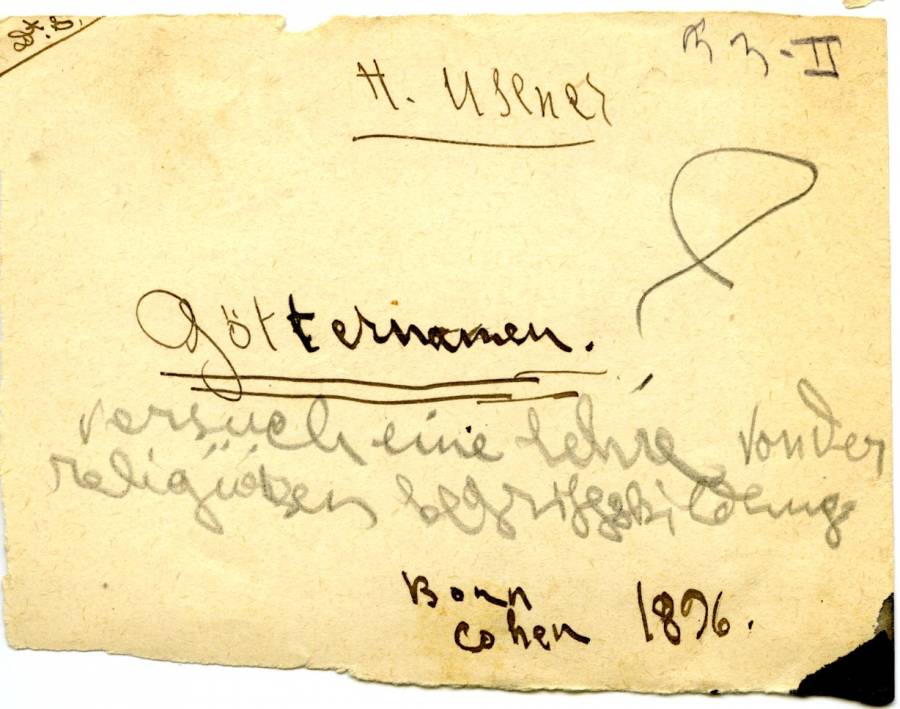 H. Usener
Götternamen.
Versuch eine Lehre von der
religiösen Begriffsbildung
Bonn
Cohen 1896.